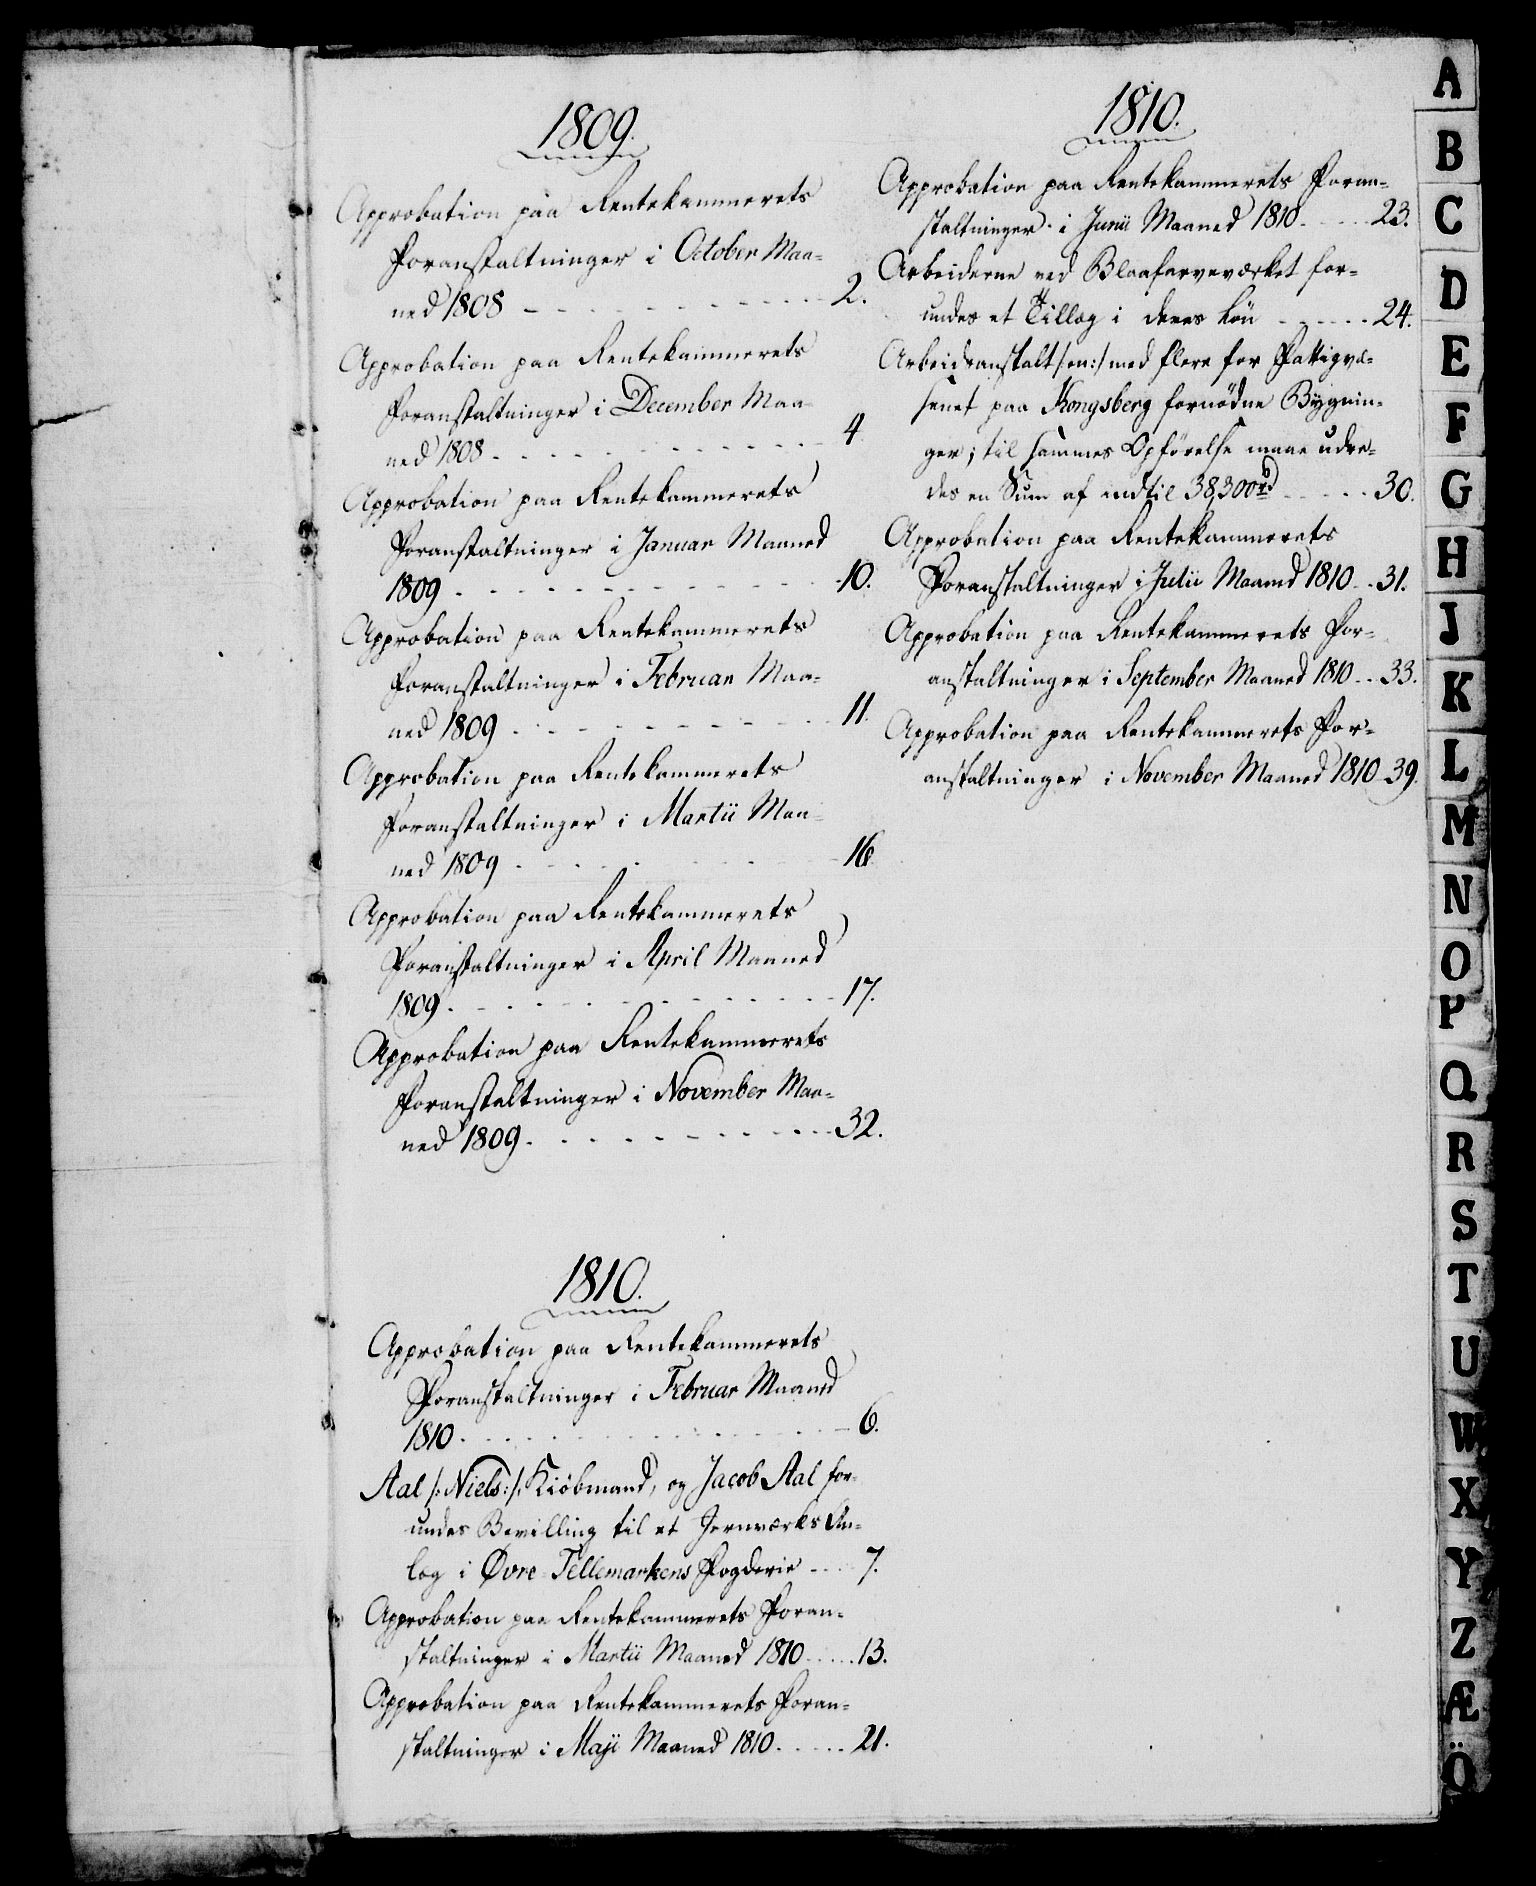 1809.
Approbation paa Rentekammerets
Foranstaltninger i October Maa-
ned 1808 2.
Approbation paa Rentekammerets
Foranstaltninger i December Maa-
ned 1808 4
Approbation paa Rentekammerets
Foranstaltninger i Januar Maaned
1809 10.
Approbation paa Rentekammerets
Foranstaltninger i Februar Maa-
ned 1809 11.
Approbation paa Rentekammerets
Foranstaltninger i Martii Maa-
ned 1809 16
Approbation paa Rentekammerets
Foranstaltninger i April Maaned
1809 17.
Approbation paa Rentekammerets
Foranstaltninger i November Maa-
ned 1809 32.
1810.
Approbation paa Rentekammerets
Foranstaltninger i Februar Maaned
1810 6.
Aal /:Niels:/ Kiöbmand, og Jacob Aal for-
undes Bevilling til et Jernværks An-
læg i Øvre Tellemarkens Fogderie 7.
Approbation paa Rentekammerets Foran-
staltninger i Martii Maaned 1810 13.
Approbation paa Rentekammerets Foran-
staltninger i Maji Maaned 1810 21.
1810.
Approbation paa Rentekammerets Foran-
staltninger i Junii Maaned 1810 23.
Arbeiderne ved Blaafarveværket for-
undes et Tillæg i deres Løn 24.
Arbeidsanstalt/:en:/ med flere for Fattigvæ-
senet paa Kongsberg fornødne Bygnin-
ger; til sammes Opförelse maae udre-
des en Sum af indtil 38,300 rd 30.
Approbation paa Rentekammerets
Foranstaltninger i Julii Maaned 1810 31.
Approbation paa Rentekammerets For-
anstaltninger i September Maaned 1810 33.
Approbation paa Rentekammerets For-
anstaltninger i November Maaned 1810 39.
A
B
C
D
E
F
G
H
J
K
L
M
N
O
P
Q
R
S
T
U
W
X
Y
Z
Æ
Ö